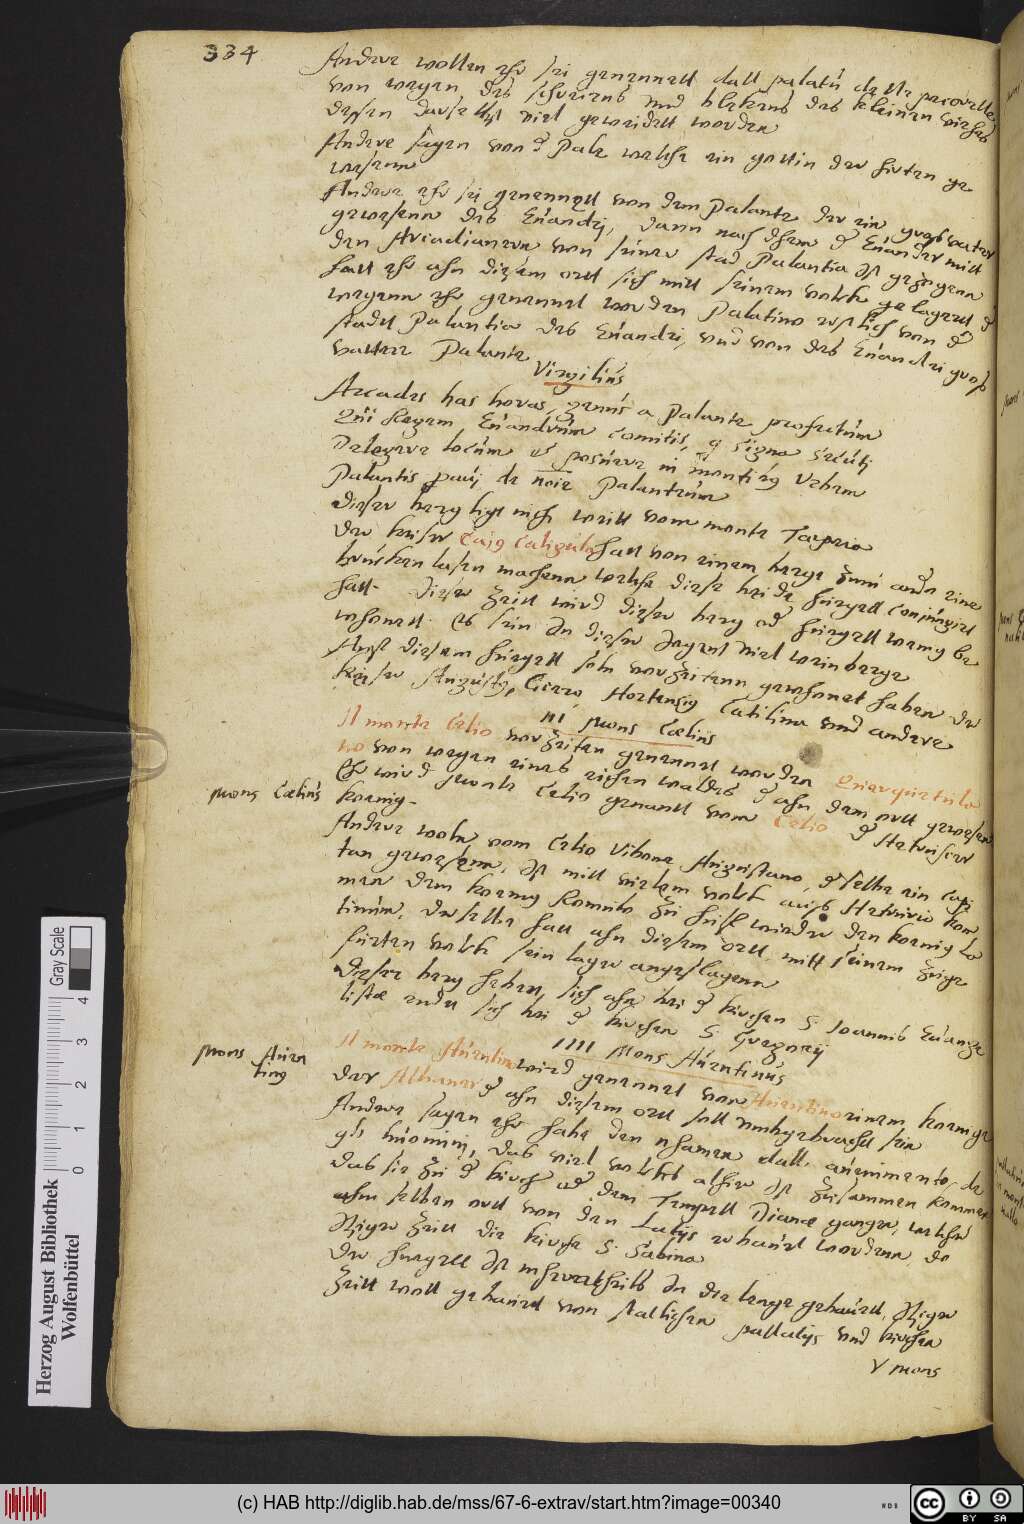 334
Andere wollen ehr sei genennett dall palatu delle pecorelle
von wegen des schreiens und blekens des kleinen viehes
dessen daruff viel geweidett worden
Andere sagen von Pale welche ein gottin der hirten ge
wesenn
Andere ehr sei genennett von dem Palante der ein grosvater
gewesenn des Euandri, dann nach dhem Euander mitt
den Arcadianern von seiner stad Palantia gezogenn
hatt ehr ahn diesem ortt sich mitt seinem volck gelagertt
wegenn ehr genennet worden Palatino erstlich von
stadtt Palantia des Euandri, und von des Euandri gros
vatter Palante
Virgilius
Arcades has horas, genus a Palante profectum
Qui Regem Euandrum comitis, signa secuti
Delegere locum et posuere in montibus Urbem
Palantis de noie Palanteum
dieser berg ligt nich weitt vom monte Tarpeio
der keiser Caius Caligula hatt von einem berge zum andern eine
brucken lasen machenn welche diese beide huegell coniungirt
hatt. dieser zeitt wird dieser berg huegell wenig be
wohnett es sein in dieser gegent viel weinberge
Auff diesem huegell soln vorzeitenn gewohnet haben der
keiser Augustus, Cicero, Hortensius Catilina und andere
III Mons Cælius
Il monte Celio vorzeiten genennet worden Querquetula
no von wegen eines eichen waldes ahn dem ortt gewesen
Ehr wird Monte Celio genantt vom Celio Hetrurischen
koenig.
Mons Cælius
Andere woln vom Celio Vibone Augustano, selbe ein capi
tan gewesenn, ist mitt vielem volck aus Hetruria kom
men dem koenig Romulo zu hulff wieder den koenig La
tinum, derselbe hatt ahn diesem ortt mitt seinem zuge
furten volck sein lager angeslagenn
Dieser berg hebett sich ahn bei kirchen S. Joannis Euange
listæ endett sich bei kirchen S. Gregorij
IIII Mons Auentinus
Il monte Auentino wird genennet vom Auentino einem koenige
der Albaner ahn diesem ortt soll umbgebracht sein
Mons Auen
tinus
Andere sagen ehr habe den nhamen dall. auenimento, de
gli huomini, das viel volckes alhier ist zusammen kommen
das sie zu kirch dem Tempell Dianæ gangen, welcher
ahm selben ortt von den Latijs erbauet wordenn, da
itziger zeitt die kirche S. Sabina
Der huegell ist mherertheils in die lenge gebauett, itziger
zeitt woll gebauett von stattlichen pallatijs und kirchen
V Mons
Herzog August Bibliothek
Wolfenbüttel
0 1 2 3 4
Gray Scale
(c) HAB http://diglib.hab.de/mss/67-6-extrav/start.htm?image=00340
WDB
cc BY SA